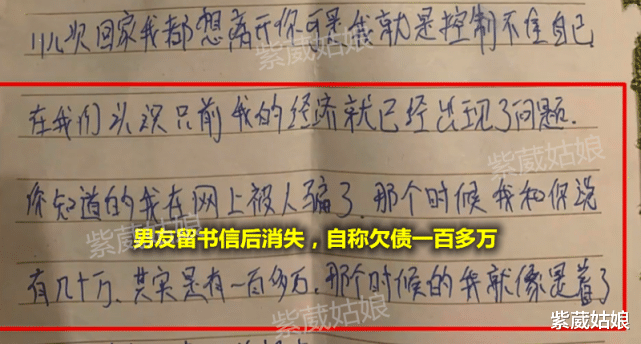 几次回家我都想离开你可是我就是控制不住自己
在我们认识只前我的经济就已经出现了问题.
你知道的我在网上被人骗了.那个时候我和你说
男友留书信后消失，自称欠债一百多万
有几十万、其实是有一百多万.那个时候的我就像是着了
紫葳姑娘
紫葳姑娘
紫葳姑娘
紫葳姑娘